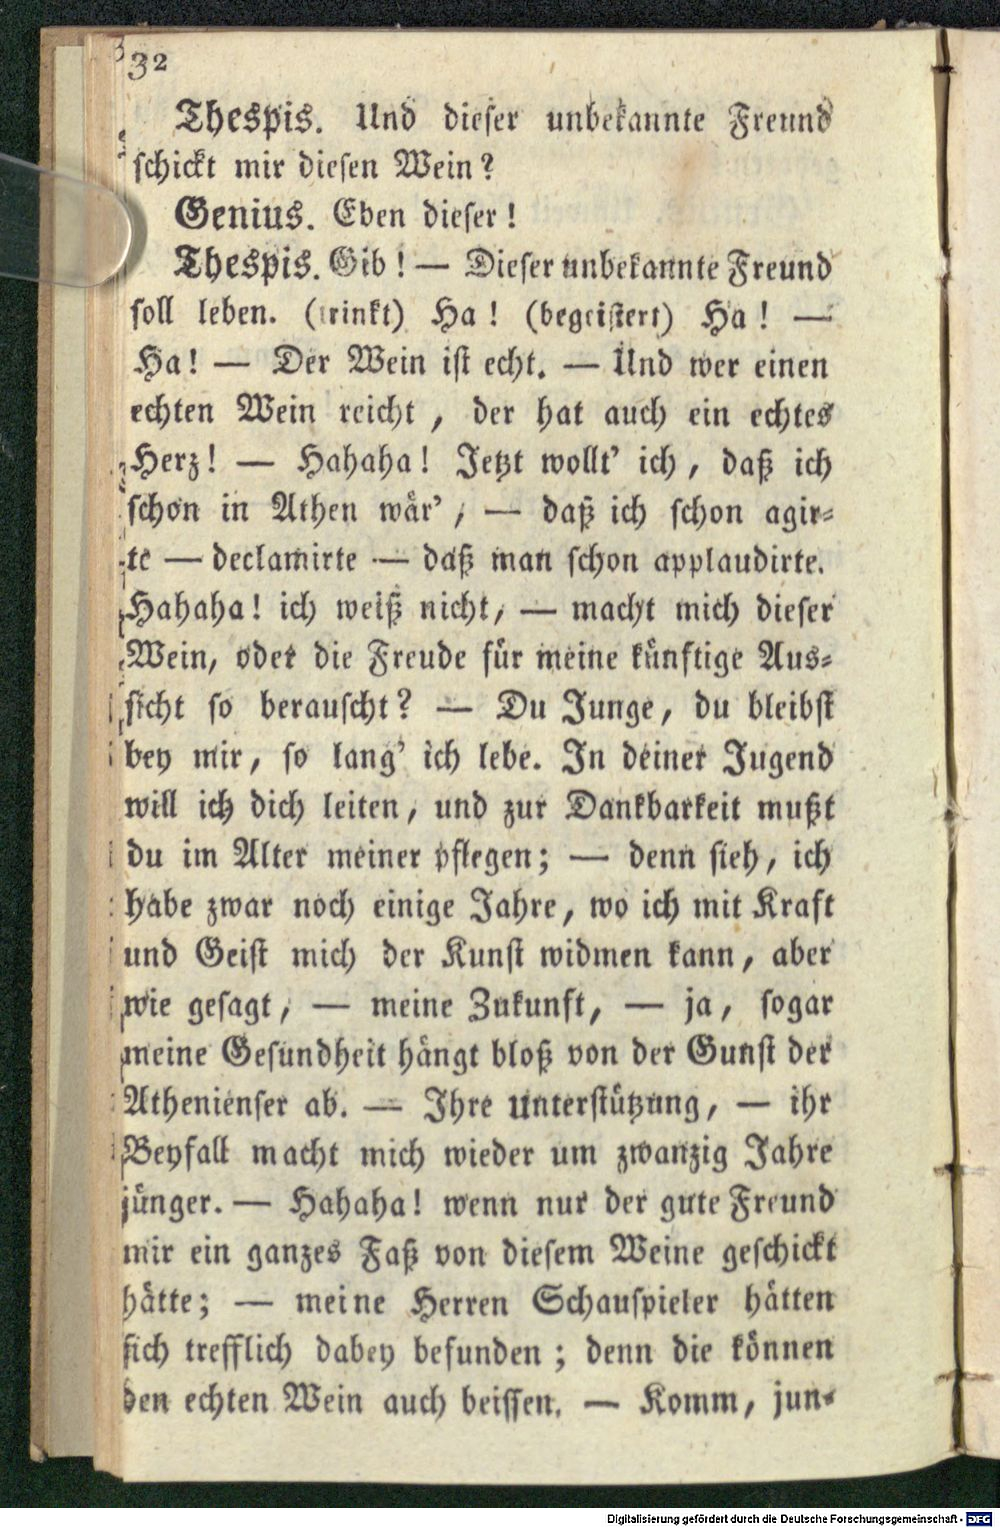 32
Thespis. Und dieser unbekannte Freund
schickt mir diesen Wein?
Genius. Eben dieser!
Thespis. Gib! — Dieser unbekannte Freund
soll leben. (trinkt) Ha! (begeistert) Ha! —
Ha! — Der Wein ist echt. — Und wer einen
echten Wein reicht, der hat auch ein echtes
Herz! — Hahaha! Jetzt wollt' ich, daß ich
schon in Athen wär', — daß ich schon agir-
te — declamirte — daß man schon applaudirte.
Hahaha! ich weiß nicht, — macht mich dieser
Wein, oder die Freude für meine künftige Aus-
sicht so berauscht? — Du Junge, du bleibst
bey mir, so lang' ich lebe. In deiner Jugend
will ich dich leiten, und zur Dankbarkeit mußt
du im Alter meiner pflegen; — denn sieh, ich
habe zwar noch einige Jahre, wo ich mit Kraft
und Geist mich der Kunst widmen kann, aber
wie gesagt, — meine Zukunft, — ja, sogar
meine Gesundheit hängt bloß von der Gunst der
Athenienser ab. — Ihre Unterstützung, — ihr
Beyfall macht mich wieder um zwanzig Jahre
jünger. — Hahaha! wenn nur der gute Freund
mir ein ganzes Faß von diesem Weine geschickt
hätte; — meine Herren Schauspieler hätten
sich trefflich dabey befunden; denn die können
den echten Wein auch beissen. — Komm, jun-
Digitalisierung gefördert durch die Deutsche Forschungsgemeinschaft - DFG